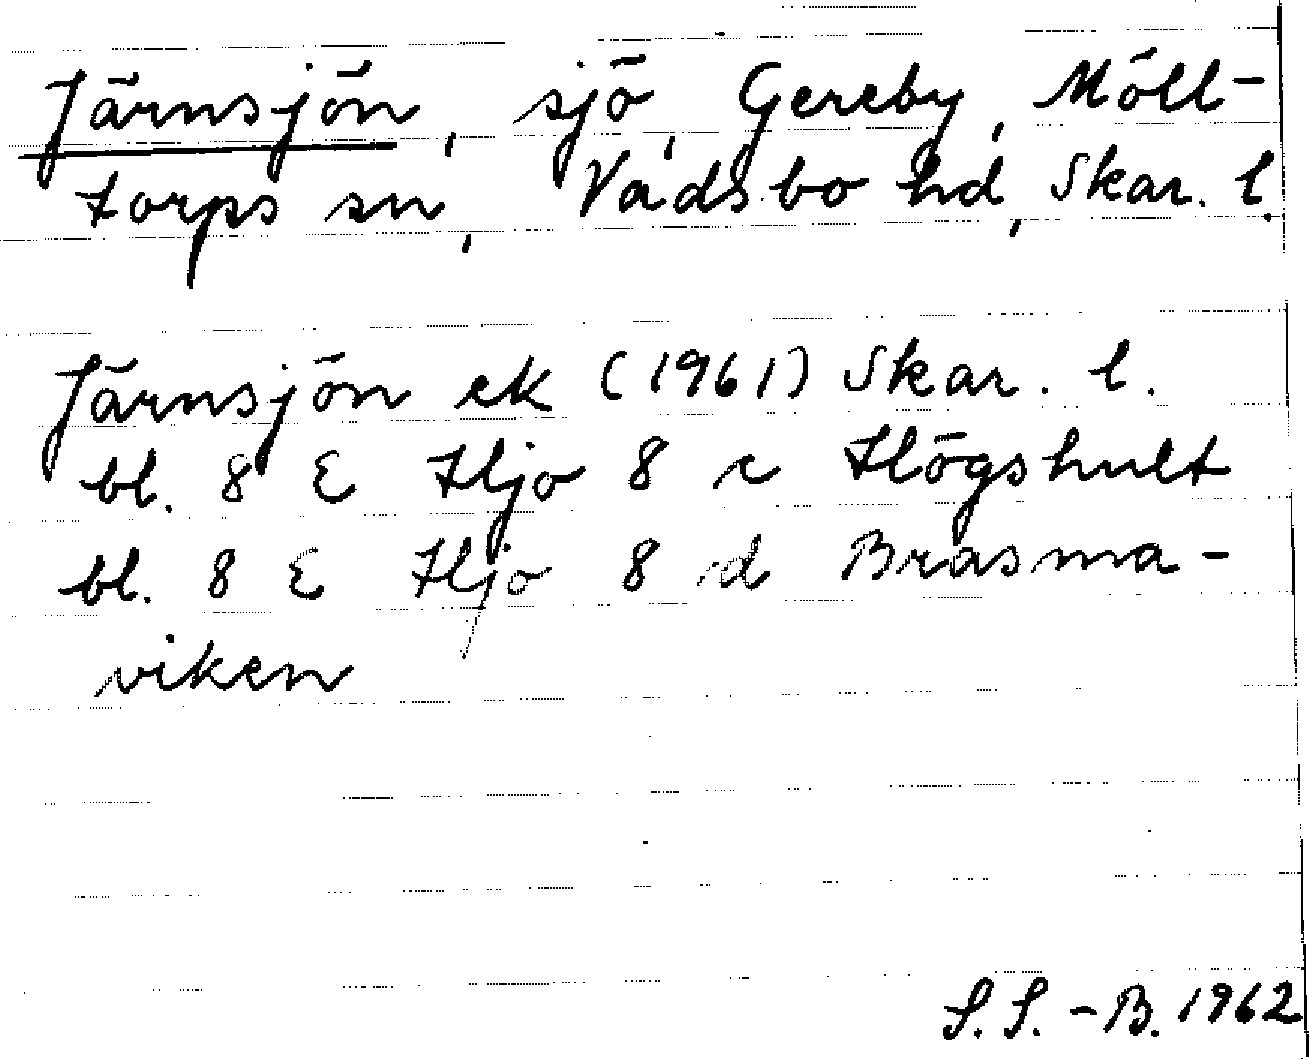 Järnsjön, sjö, Gereby, Möll-
torps sn, Vadsbo hd, Skar. l.
Järnsjön ek (1961) Skar. l.
bl. 8 E Hjo 8 c Högshult
bl. 8 E Hjo 8 d Brasma-
viken
S. S. - B. 1962